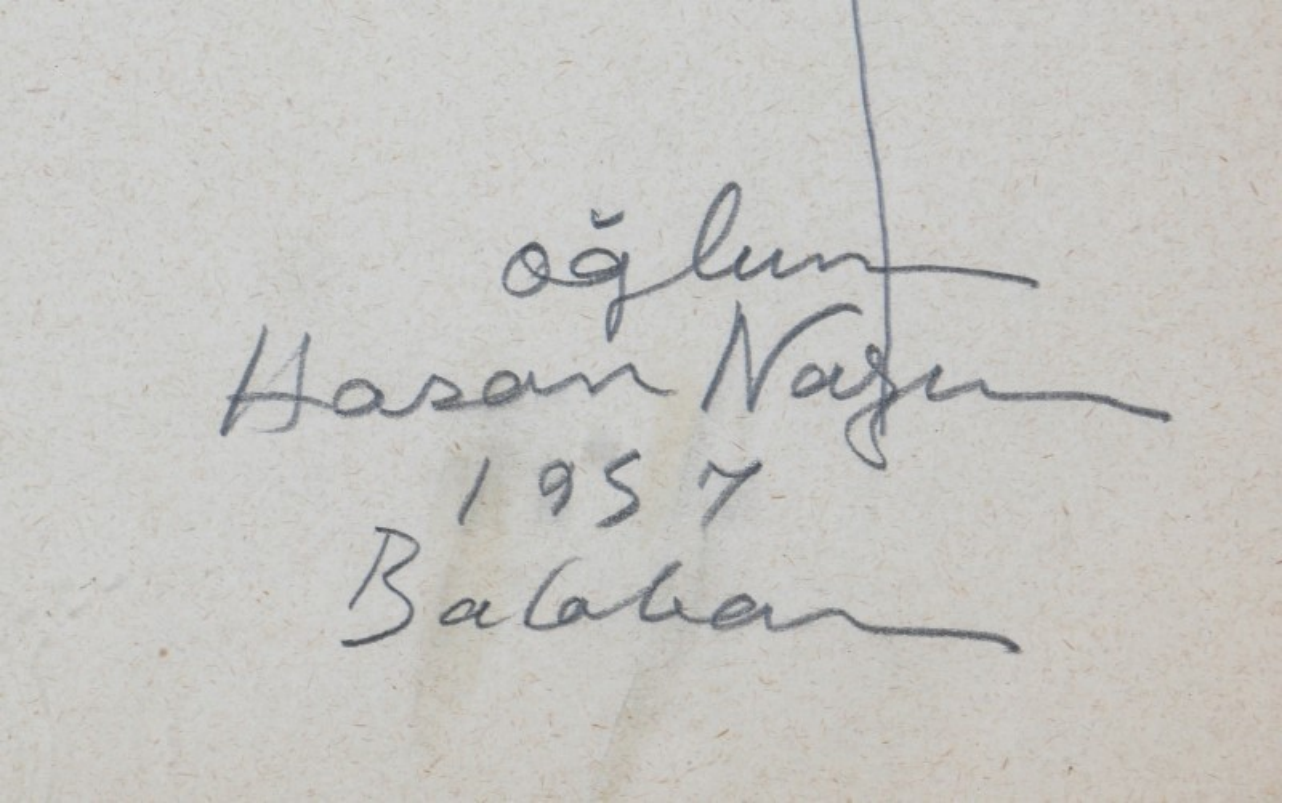 oğlum
Hasan Nazım
1957
Balaban